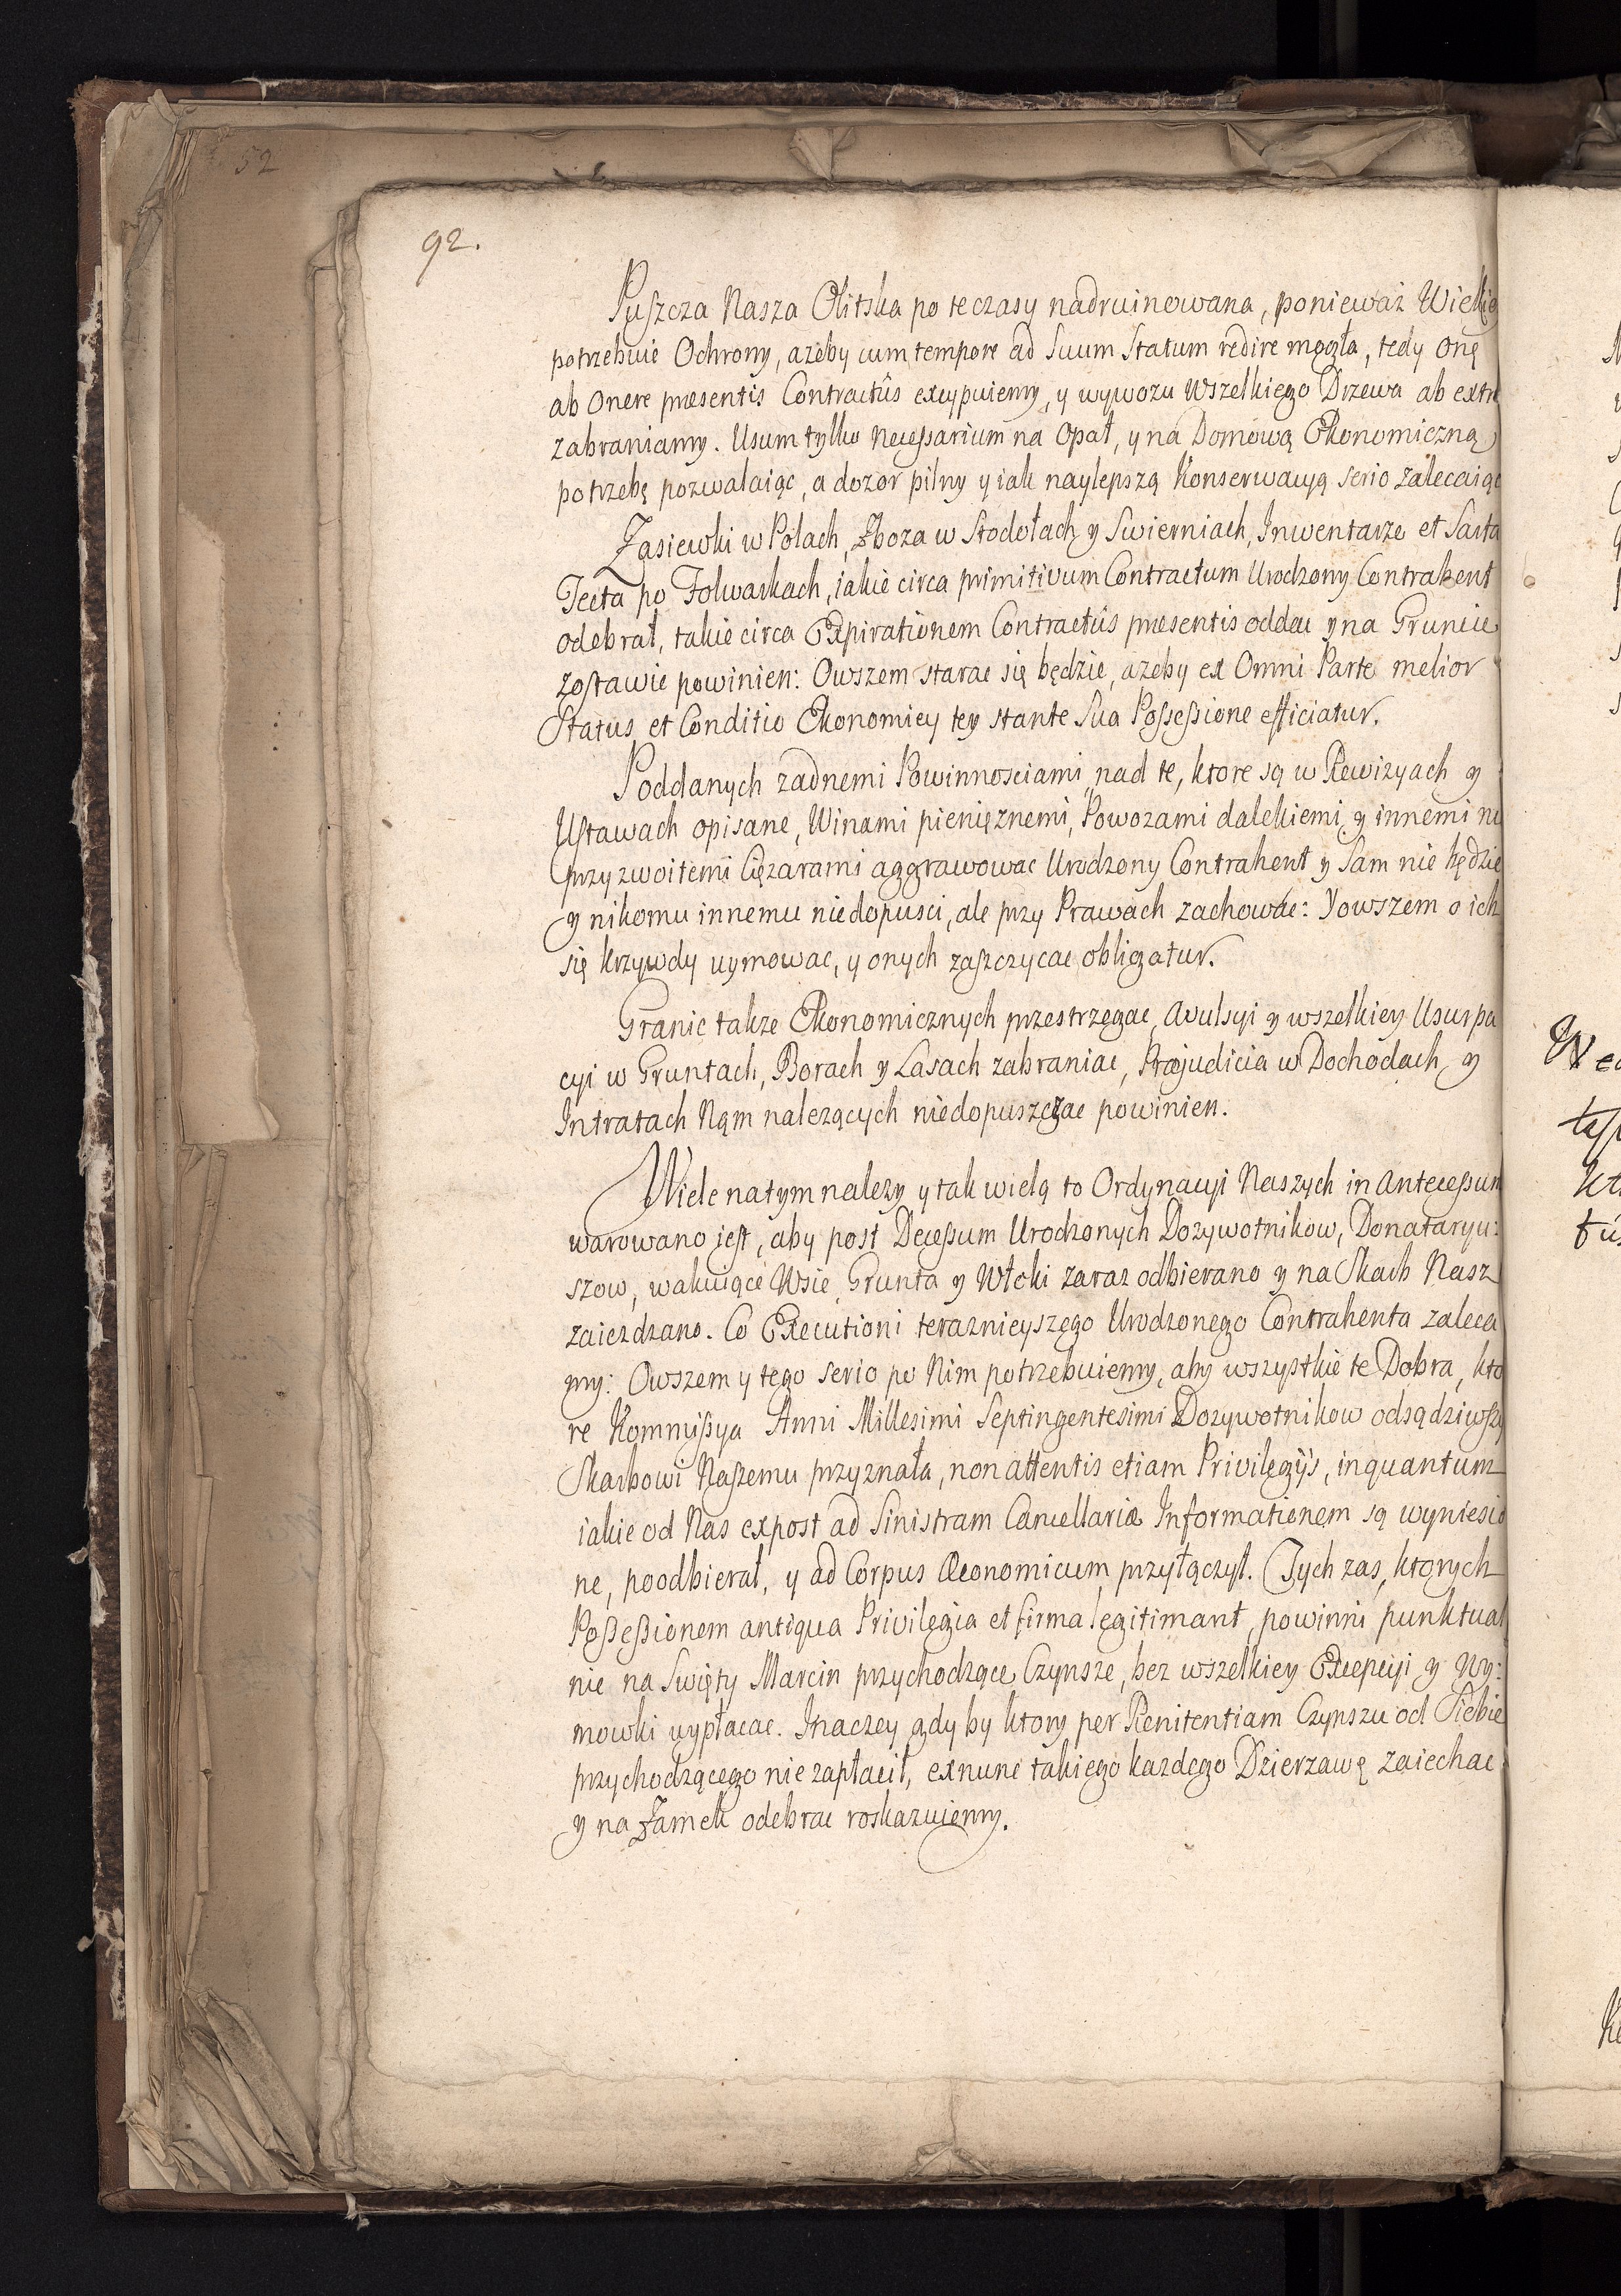 52
92.
Puszcza Nasza Olitska po te czasy nadruinowana, ponieważ Wielkie
potrzebuie Ochrony, azeby cum tempore ad Suum Statum redire mogła, tedy Onę
ab Onere præsentis Contractûs excypuiemy, y wywozu Wszelkiego Drzewa ab extr
zabraniamy. Usum tylko necessarium na Opał, y na Domową Ekonomiczną
potrzebę pozwalaiąc, a dozor pilny y iak naylepszą Konserwacyą serio zalecaiąc
Zasiewki w Polach, Zboza w Stodołach y Swierniach, Inwentarze et Sarta
Tecta po Folwarkach, iakie circa primitivum Contractum Urodzony Contrahent
odebrał, takie circa Expirationem Contractûs præsentis oddac y na Gruncie
zostawic powinien: Owszem starac się będzie, azeby ex Omni Parte melior
Status et Conditio Ekonomiey tey stante Sua Possessione efficiatur.
Poddanych zadnemi Powinnosciami nad te, ktore są w Rewizyach y
Ustawach opisane, Winami pienięznemi, Powozami dalekiemi y innemi nie
przyzwoitemi Cięzarami aggrawowac Urodzony Contrahent y Sam nie będzie
y nikomu innemu niedopusci, ale przy Prawach zachowac: Y owszem o ich
się krzywdy uymowac, y onych zaszczycac obligatur.
Granic takze Ekonomicznych przestrzegac, Avulsyi y wszelkiey Usurpa
cyi w Gruntach, Borach y Lasach zabraniac, Præjudicia w Dochodach y
Intratach Nąm nalezących niedopuszczac powinien.
Wiele natym nalezy y tak wielą to Ordynacyi Naszych in Antecessum
warowano jest, aby post Decessum Urodzonych Dozywotnikow, Donataryu:
szow, wakuiące Wsie, Grunta y Włoki zaraz odbierano y na Skarb Nasz
zaiezdzano. Co Executioni teraznieyszego Urodzonego Contrahenta zaleca
my: Owszem y tego serio po Nim potrzebuiemy, aby wszystkie te Dobra, kto
re Kommissya Anni Millesimi Septingentesimi Dozywotnikow odsądziwszy
Skarbowi Naszemu przyznała, non attentis etiam Privilegijs, inquantum
iakie od Nas expost ad Sinistram Cancellariæ Informationem są wyniesio
ne, poodbierał, y ad Corpus Œconomicum przyłączył. Tych zas, ktorych
Possessionem antiqua Privilegia et firma legitimant, powinni punktual
nie na Swięty Marcin przychodzące Czynsze, bez wszelkiey Excepcyi y Wy:
mowki wypłacac. Inaczey gdy by ktory per Renitentiam Czynszu od Siebie
przychodzącego nie zapłacił, exnunc takiego kazdego Dzierzawę zaiechac
y na Zamek odebrac roskazuiemy.